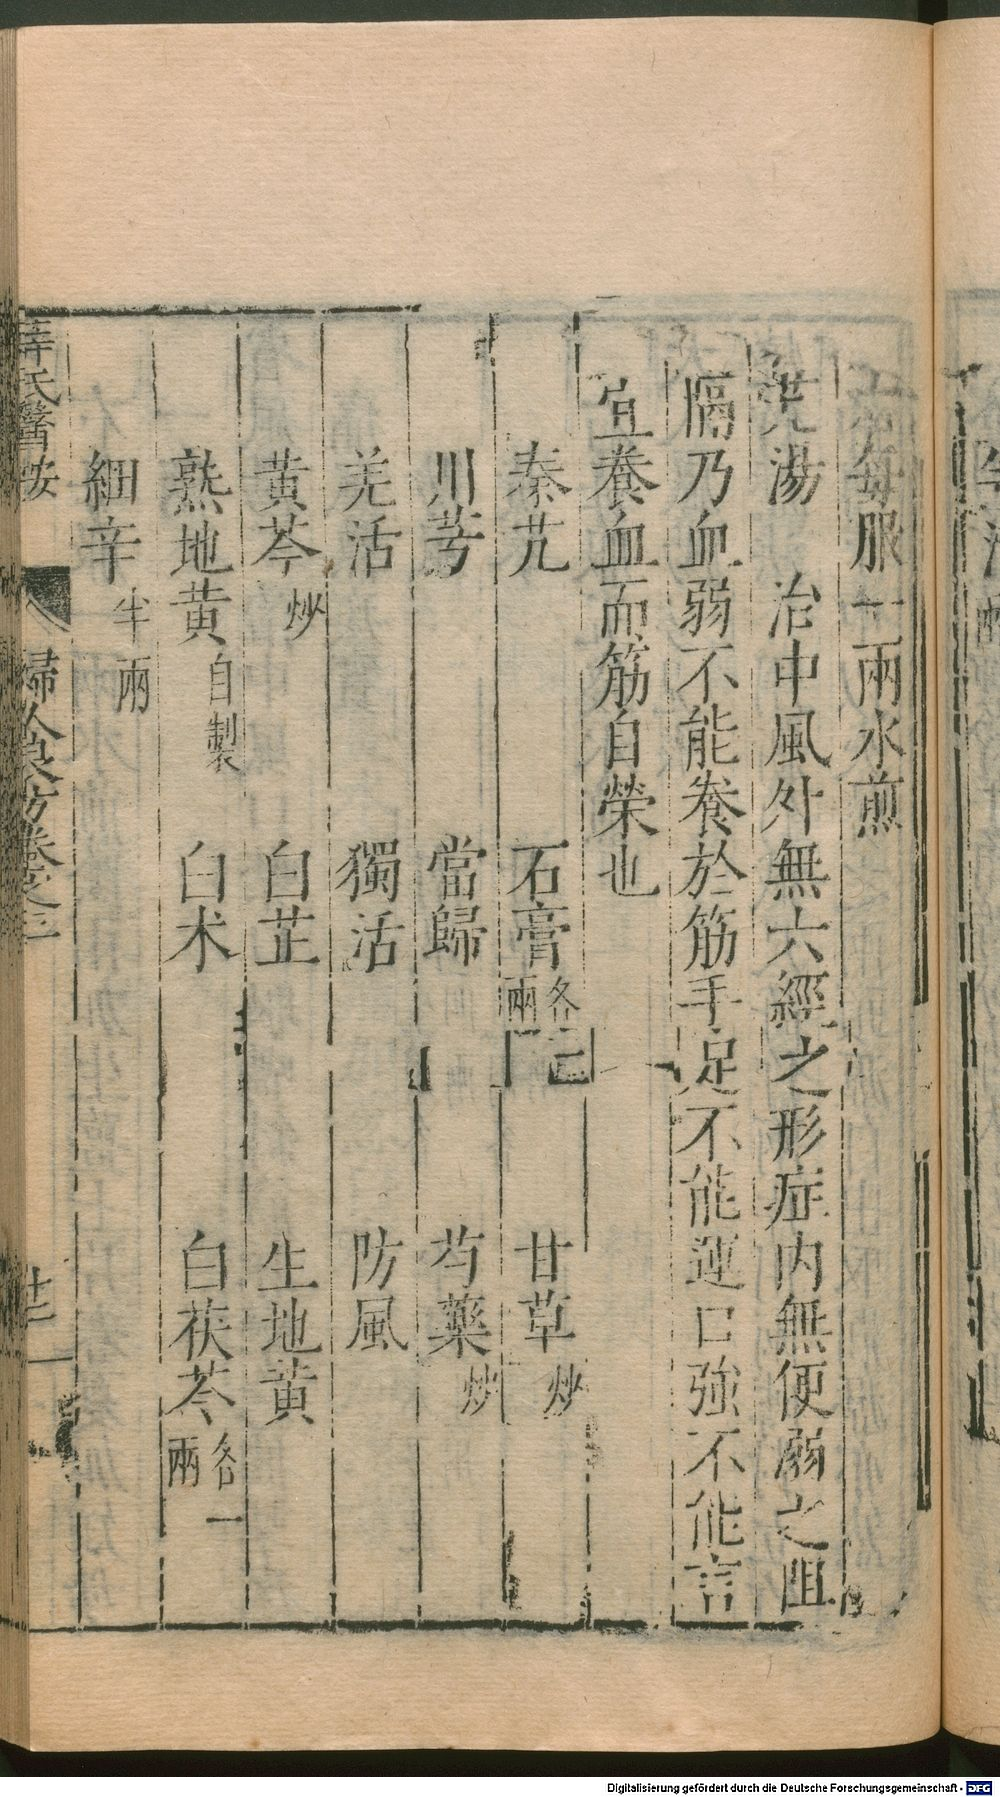 每服一兩水煎
芃湯　治中風外無六經之形症內無便溺之阻
隔乃血弱不能養於筋手足不能運口強不能言
宜養血而筋自榮也
秦芃　石膏各二兩　甘草炒
川芎　當歸　芍藥炒
羌活　獨活　防風
黃芩炒　白芷　生地黃
熟地黃自製　白朮　白茯苓各一兩
細辛半兩
薛氏醫按　婦人良方卷之三
Digitalisierung gefördert durch die Deutsche Forschungsgemeinschaft - DFG